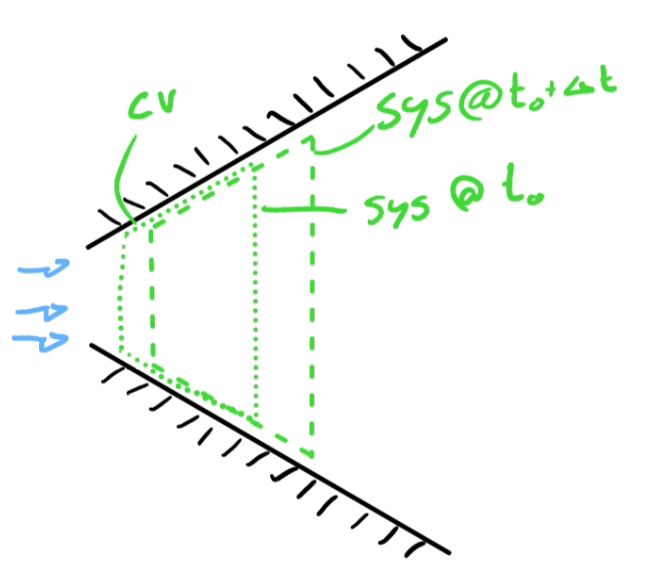 CV
sys@t₀+Δt
sys @ t₀